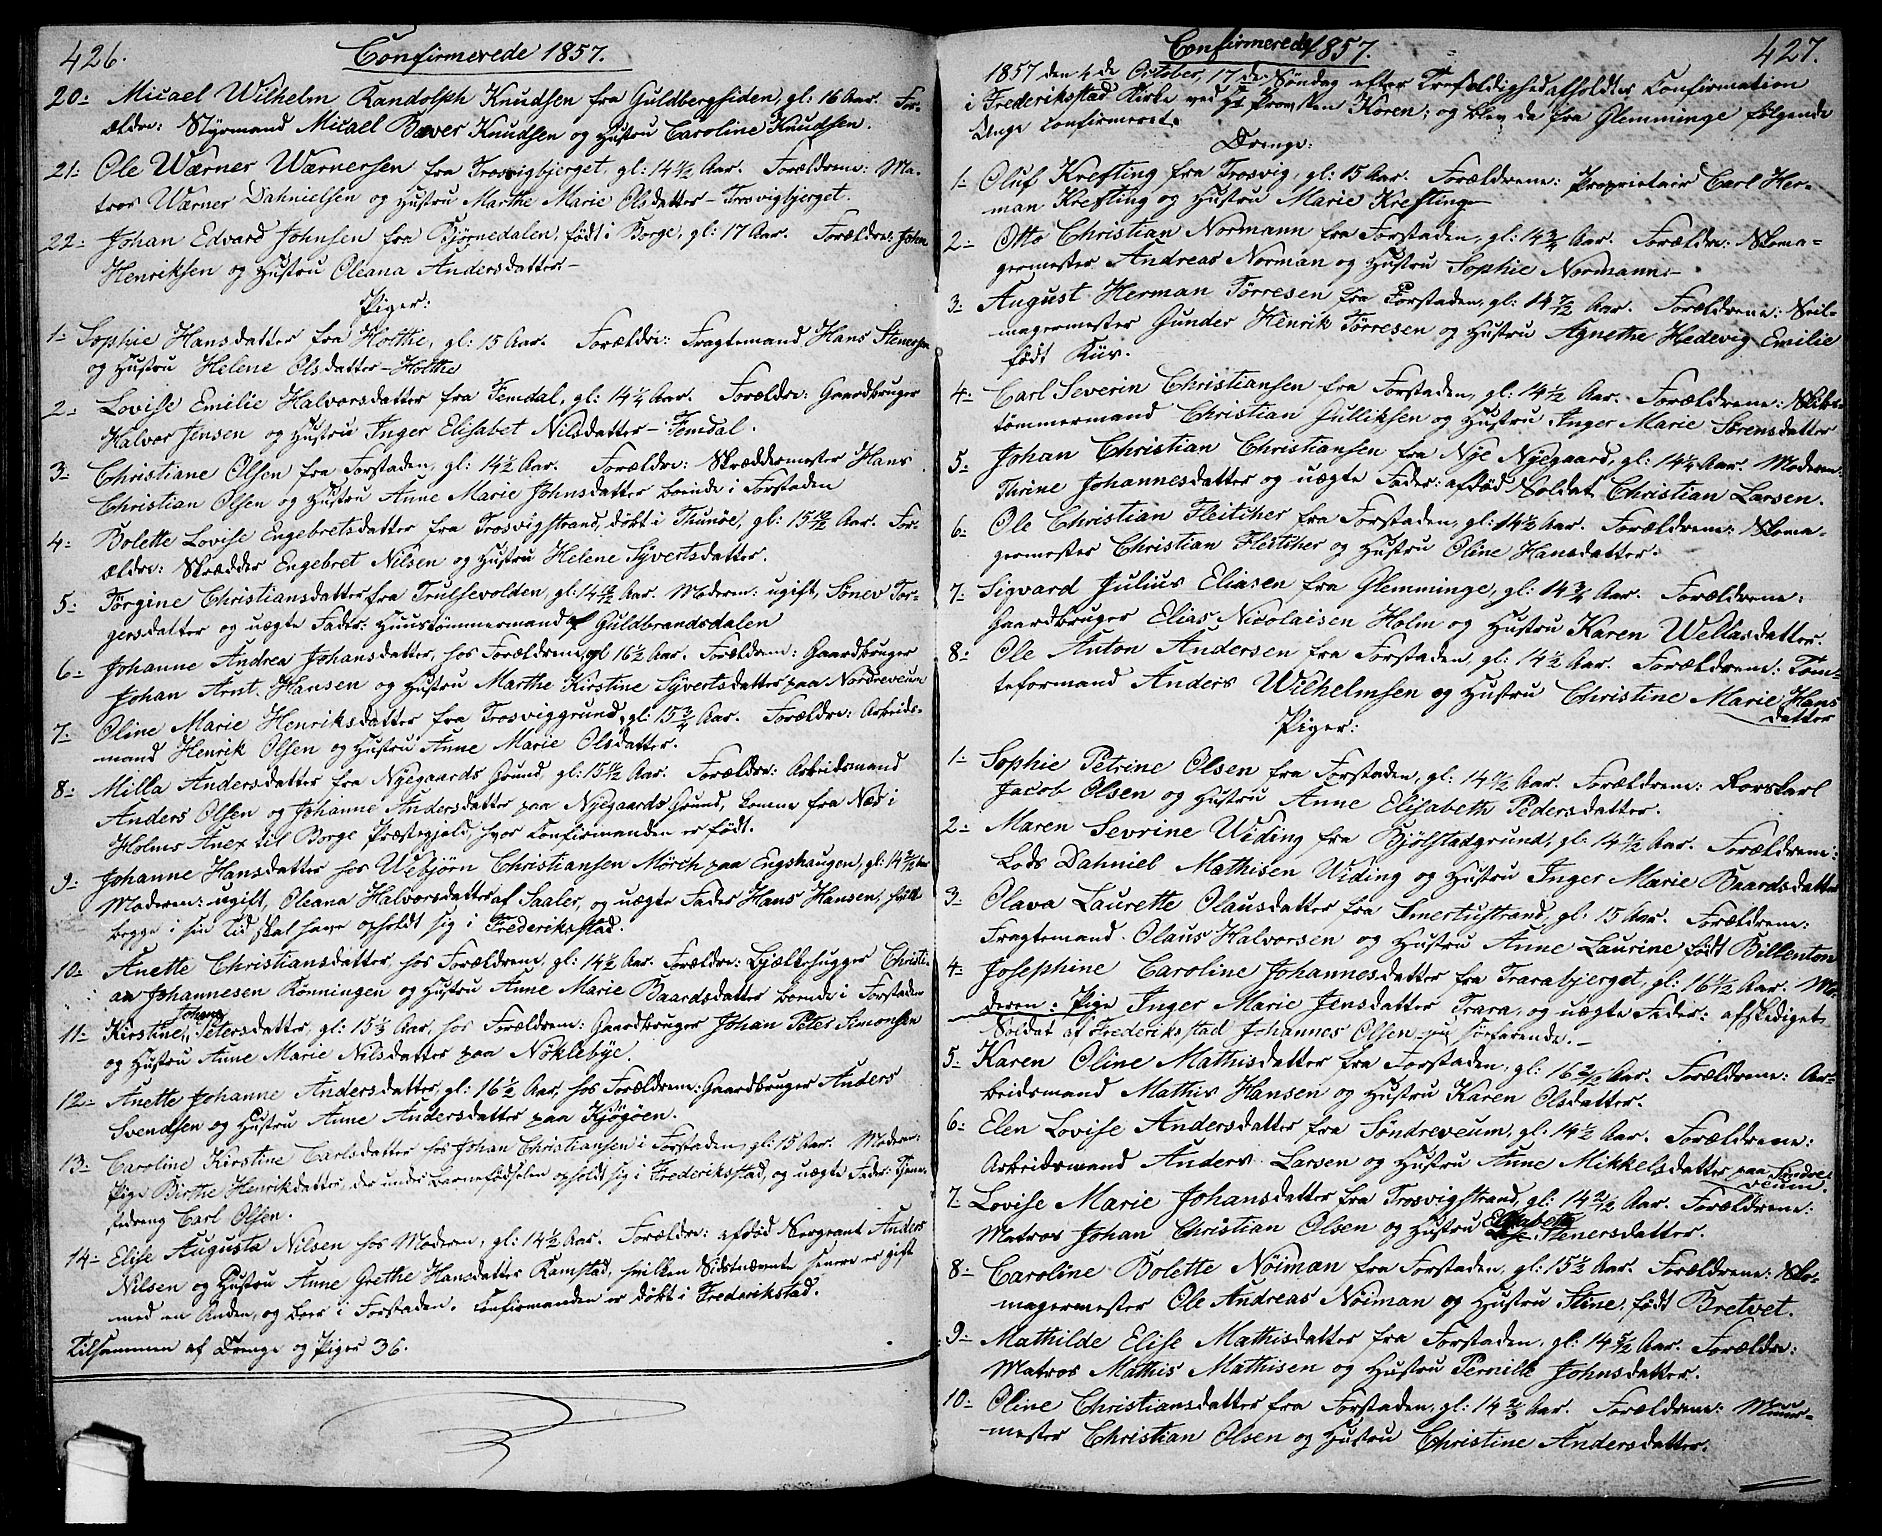 426.
Confirmerede 1857.
20- Micael Wilhelm Randolph Knudsen fra Guldbergsiden, gl: 16 Aar. For-
ældre: Styrmand Micael Bæver Knudsen og Hustru Caroline Knudsen.
21- Ole Wærner Wærnersen fra Trosvigbjerget, gl: 14 1/2 Aar. Forældrene: Ma-
tros Wærner Dahnielsen og Hustru Marthe Marie Olsdatter - Trosvigbjerget.
22- Johan Edvard Johnsen fra Bjørnedalen, født i Borge, gl: 17 Aar. Forældre: John
Henriksen og Hustru Oleana Andersdatter-
Piger:
1- Sophie Hansdatter fra Holthe, gl: 15 Aar. Forældre: Fragtemand Hans Stenersen
og Hustru Helene Olsdatter - Holthe
2- Lovise Emilie Halvorsdatter fra Femdal, gl: 14 1/4 Aar. Forældre: Gaardbruger
Halvor Jensen og Hustru Inger Elisabet Nilsdatter - Femdal.
3- Christiane Olsen fra Forstaden, gl: 14 1/2 Aar. Forældre: Skræddermester Hans
Christian Olsen og Hustru Anne Marie Johnsdatter boende i Forstaden
4- Bolette Lovise Engebretsdatter fra Trosvigstrand, døbt i Thunøe, gl: 15 10/12 Aar. For-
ældre: Skrædder Engebret Nilsen og Hustru Helene Syvertsdatter.
5- Torgine Christiansdatter fra Trulsevolden, gl: 14 Aar. Moderen: ugift, Torger-
gersdatter og uægte Fader: Huustømmermand af Guldbrandsdalen
6- Johanne Andrea Johansdatter, hos Forældrene, gl 16 1/2 Aar. Forældrene: Gaardbruger
Johan Arnt Hansen og Hustru Marthe Kirstine Syvertsdatter paa Nordreveum
7- Oline Marie Henriksdatter fra Trosviggrund, gl: 15 3/4 Aar. Forældre: Arbeids-
mand Henrik Olsen og Hustru Anne Marie Olsdatter.
8- Milla Andersdatter fra Nyegaards Grund, gl: 15 Aar. Forældre: Arbeidsmand
Anders Olsen og Johanne Andersdatter paa Nyegaards Grund, komne fra Næs i
Holms Anex til Borge Præstegjeld, hvor Confirmanden er født.
9- Johanne Hansdatter hos Webjørn Christiansen Mörch paa Engshaugen, gl: 14 Aar
Moderen: ugift, Oleana Halvorsdatter af Saaler, og uægte Fader Hans Hansen, hvilke
begge i sin Tid skal have opholdt sig i Frederiksstad.
10- Anette Christiansdatter, hos Forældrene, gl: 14 1/2 Aar. Forældre: Bjælkehugger Christi-
an Johannesen Rønningen og Hustru Anne Marie Baardsdatter boende i Forstaden
11- Kirstine Johane Petersdatter, gl: 15 1/3 Aar, hos Forældrene: Gaardbruger Johan Peter Simonsen
og Hustru Anne Marie Nilsdatter paa Nøklebye.
12- Anette Johanne Andersdatter, gl: 16 1/2 Aar, hos Forældrene: Gaardbruger Anders
Svendsen og Hustru Anne Andersdatter paa Kjøgøen.
13- Caroline Kirstine Carlsdatter hos Johan Christiansen i Forstaden, gl: 15 Aar. Moder:
Pige Birthe Henrikdatter, der under Barnefødselen opholdt sig i Frederiksstad, og uægte Fader: Tjene-
stedreng Carl Olsen.
14- Elise Augusta Nilsen hos Moderen, gl: 14 1/2 Aar. Forældre: afdød Sergeant Anders
Nilsen og Hustru Anne Grethe Hansdatter Ramstad, hvilken Sidstnævnte senere er gift
med en Anden, og boer i Forstaden. Confirmanden er døbt i Frederiksstad.
Tilsammen af Drenge og Piger 36.
427.
Confirmerede 1857.
1857 den 4de October, 17de Søndag efter Trefoldighed afholdtes Confirmation
i Frederiksstad Kirke ved Hr Provsten Koren; og blev da fra Glemminge følgende
Unge confirmeret.
Drenge:
1- Oluf Krefting fra Trosvig, gl: 15 Aar. Forældrene: Proprietair Carl Her-
man Krefting og Hustru Marie Krefting-
2- Otto Christian Normann fra Forstaden, gl: 14 3/4 Aar. Forældre: Skoma-
germester Andreas Norman og Hustru Sophie Normann-
3- August Herman Tørresen fra Forstaden, gl: 14 7/12 Aar. Forældrene: Seil-
magermester Gunder Henrik Tørresen og Hustru Agnethe Hedevig Emilie
født Kiär.
4- Carl Severin Christiansen fra Forstaden, gl: 14 1/2 Aar. Forældrene: Skibs-
tømmermand Christian Gulliksen og Hustru Inger Marie Sørensdatter
5- Johan Christian Christiansen fra Nye Nyegaard, gl: 14 1/4 Aar. Moderen:
Thrine Johannesdatter og uægte Fader: afdød Soldat Christian Larsen.
6- Ole Christian Fleischer fra Forstaden, gl: 14 1/2 Aar. Forældrene: Skoma-
germester Christian Fleischer og Hustru Oline Hansdatter:
7- Sigvard Julius Eliasen fra Glemminge, gl: 14 3/4 Aar. Forældrene:
Gaardbruger Elias Nicolaisen Holm og Hustru Karen Wellasdatter.
8- Ole Anton Andersen fra Forstaden, gl: 14 1/2 Aar. Forældrene: Tom-
teformand Anders Wilhelmsen og Hustru Christine Marie Hans
datter
Piger:
1- Sophie Petrine Olsen fra Forstaden, gl: 14 Aar. Forældrene: Rorskarl
Jacob Olsen og Hustru Anne Elisabeth Pedersdatter.
2- Maren Sevrine Widing fra Bjølstadgrund, gl: 14 Aar. Forældrene:
Lods Dahniel Mathisen Widing og Hustru Inger Marie Baardsdatter
3- Olava Laurette Olausdatter fra Smertustrand, gl: 15 Aar. Forældrene:
Fragtemand Olaus Halvorsen og Hustru Anne Laurine født Billenton
4- Josephine Caroline Johannesdatter fra Trarabjerget, gl: 16 1/2 Aar. Mo-
deren: Pige Inger Marie Jensdatter Trara, og uægte Fader: afskediget
Soldat af Frederiksstad Johannes Olsen - nu søefarende. -
5- Karen Oline Mathisdatter fra Forstaden, gl: 16 Aar. Forældrene: Ar-
beidsmand Mathis Hansen og Hustru Karen Olsdatter.
6- Elen Lovise Andersdatter fra Søndreveum, gl: 14 1/2 Aar. Forældrene:
Arbeidsmand Anders Larsen og Hustru Anne Mikkelsdatter paa Søndre-
veum.
7- Lovise Marie Johansdatter fra Trosvigstrand, gl: 14 Aar. Forældrene:
Matros Johan Christian Olsen og Hustru Elisabeth Stenersdatter.
8- Caroline Bolette Nøiman fra Forstaden, gl: 15 1/2 Aar. Forældrene: Sko-
magermester Ole Andreas Nøiman og Hustru Stine, født Bretvet.
9- Mathilde Elise Mathisdatter fra Forstaden, gl: 14 Aar. Forældre:
Matros Mathis Mathisen og Hustru Pernille Johnsdatter.
10- Oline Christiansdatter fra Forstaden, gl: 14 2/3 Aar. Forældrene: Muur-
mester Christian Olsen og Hustru Christine Andersdatter.